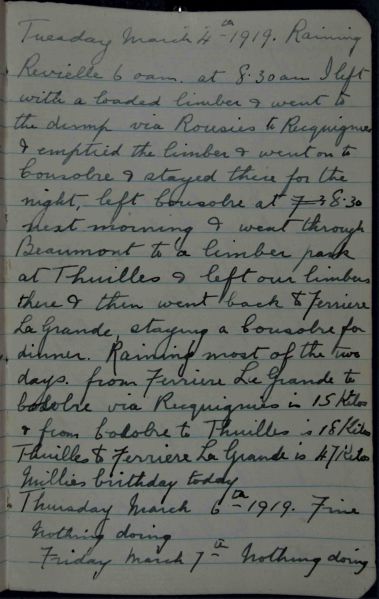 Tuesday March 4th 1919. Raining
Revielle 6 oam. at 8.30am I left
with a loaded limber & went to
the dump via Rousies to Recquignies
& emptied the limber & went on to
Cousobre & stayed there for the
night, left Cousobre at 8.30
next morning & went through
Beaumont to a limber park
at Thuilles & left our limbers
there & then went back to Ferriere
La Grande, staying a Cousobre for
dinner. Raining most of the two
days. from Ferriere La Grande to
via Recquignies is 15 Kilos
& from to Thuilles is 18 Kilos
Thuilles to Ferriere La Grande is 47 Kilos
Millies birthday today
Thursday March 6th 1919. Fine
Nothing doing
Friday March 7th Nothing doing